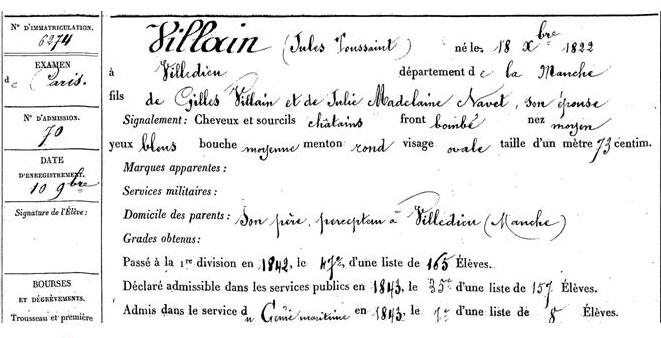 N° D'IMMATRICULATION.
6274
EXAMEN
de Paris.
N° D'ADMISSION.
70
DATE
D'ENREGISTREMENT.
10 9bre
Signature de l'Élève :
BOURSES
ET DÉGRÈVEMENTS.
Trousseau et première
Villain (Jules Toussaint) né le 18 Xbre 1822
à Villedieu département de la Manche
fils de Gilles Villain et de Julie Madelaine Navet, son épouse
Signalement : Cheveux et sourcils châtains front bombé nez moyen
yeux bleus bouche moyenne menton rond visage ovale taille d'un mètre 73 centim.
Marques apparentes :
Services militaires :
Domicile des parents : Son père, percepteur à Villedieu (Manche)
Grades obtenus :
Passé à la 1re division en 1842, le 47e d'une liste de 165 Élèves.
Déclaré admissible dans les services publics en 1843, le 35e d'une liste de 157 Élèves.
Admis dans le service du Génie maritime en 1843, le 1er d'une liste de 8 Élèves.